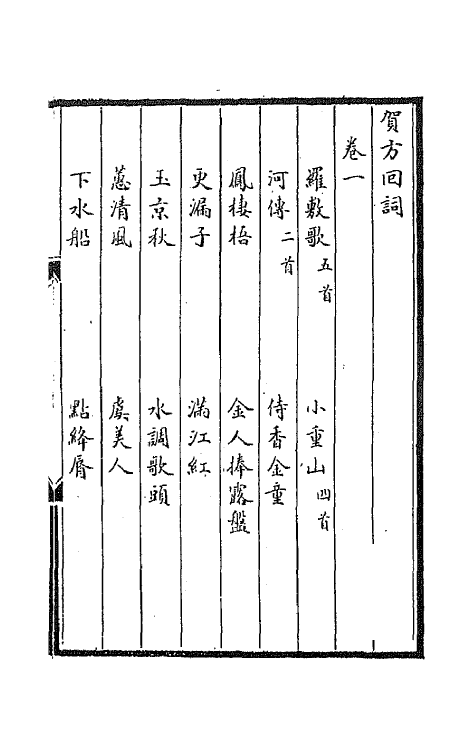 賀方回詞
卷一
羅敷歌五首 小重山四首
河傳二首 侍香金童
鳳棲梧 金人捧露盤
更漏子 滿江紅
玉京秋 水調歌頭
蕙清風 虞美人
下水船 點絳脣